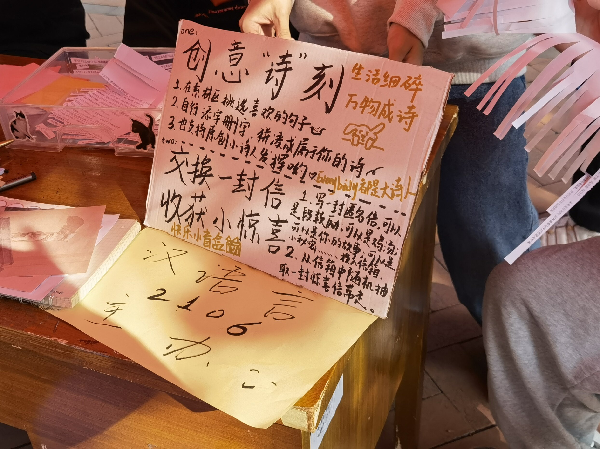 one:
创意“诗”刻
生活细碎
万物成诗
1. 在素材区挑选喜欢的句子
2. 自行添字删字 拼凑成属于你的诗
3. 也支持原创小诗人发挥哟
Everybody都是大诗人
two:
交换一封信
收获小惊喜
1. 写一封匿名信,可以
是段鼓励,可以是鸡汤,
可以是你的故事,可以是
小秘密……投入信箱
2. 从信箱中随机抽
取一封
汉语言
2106
主办